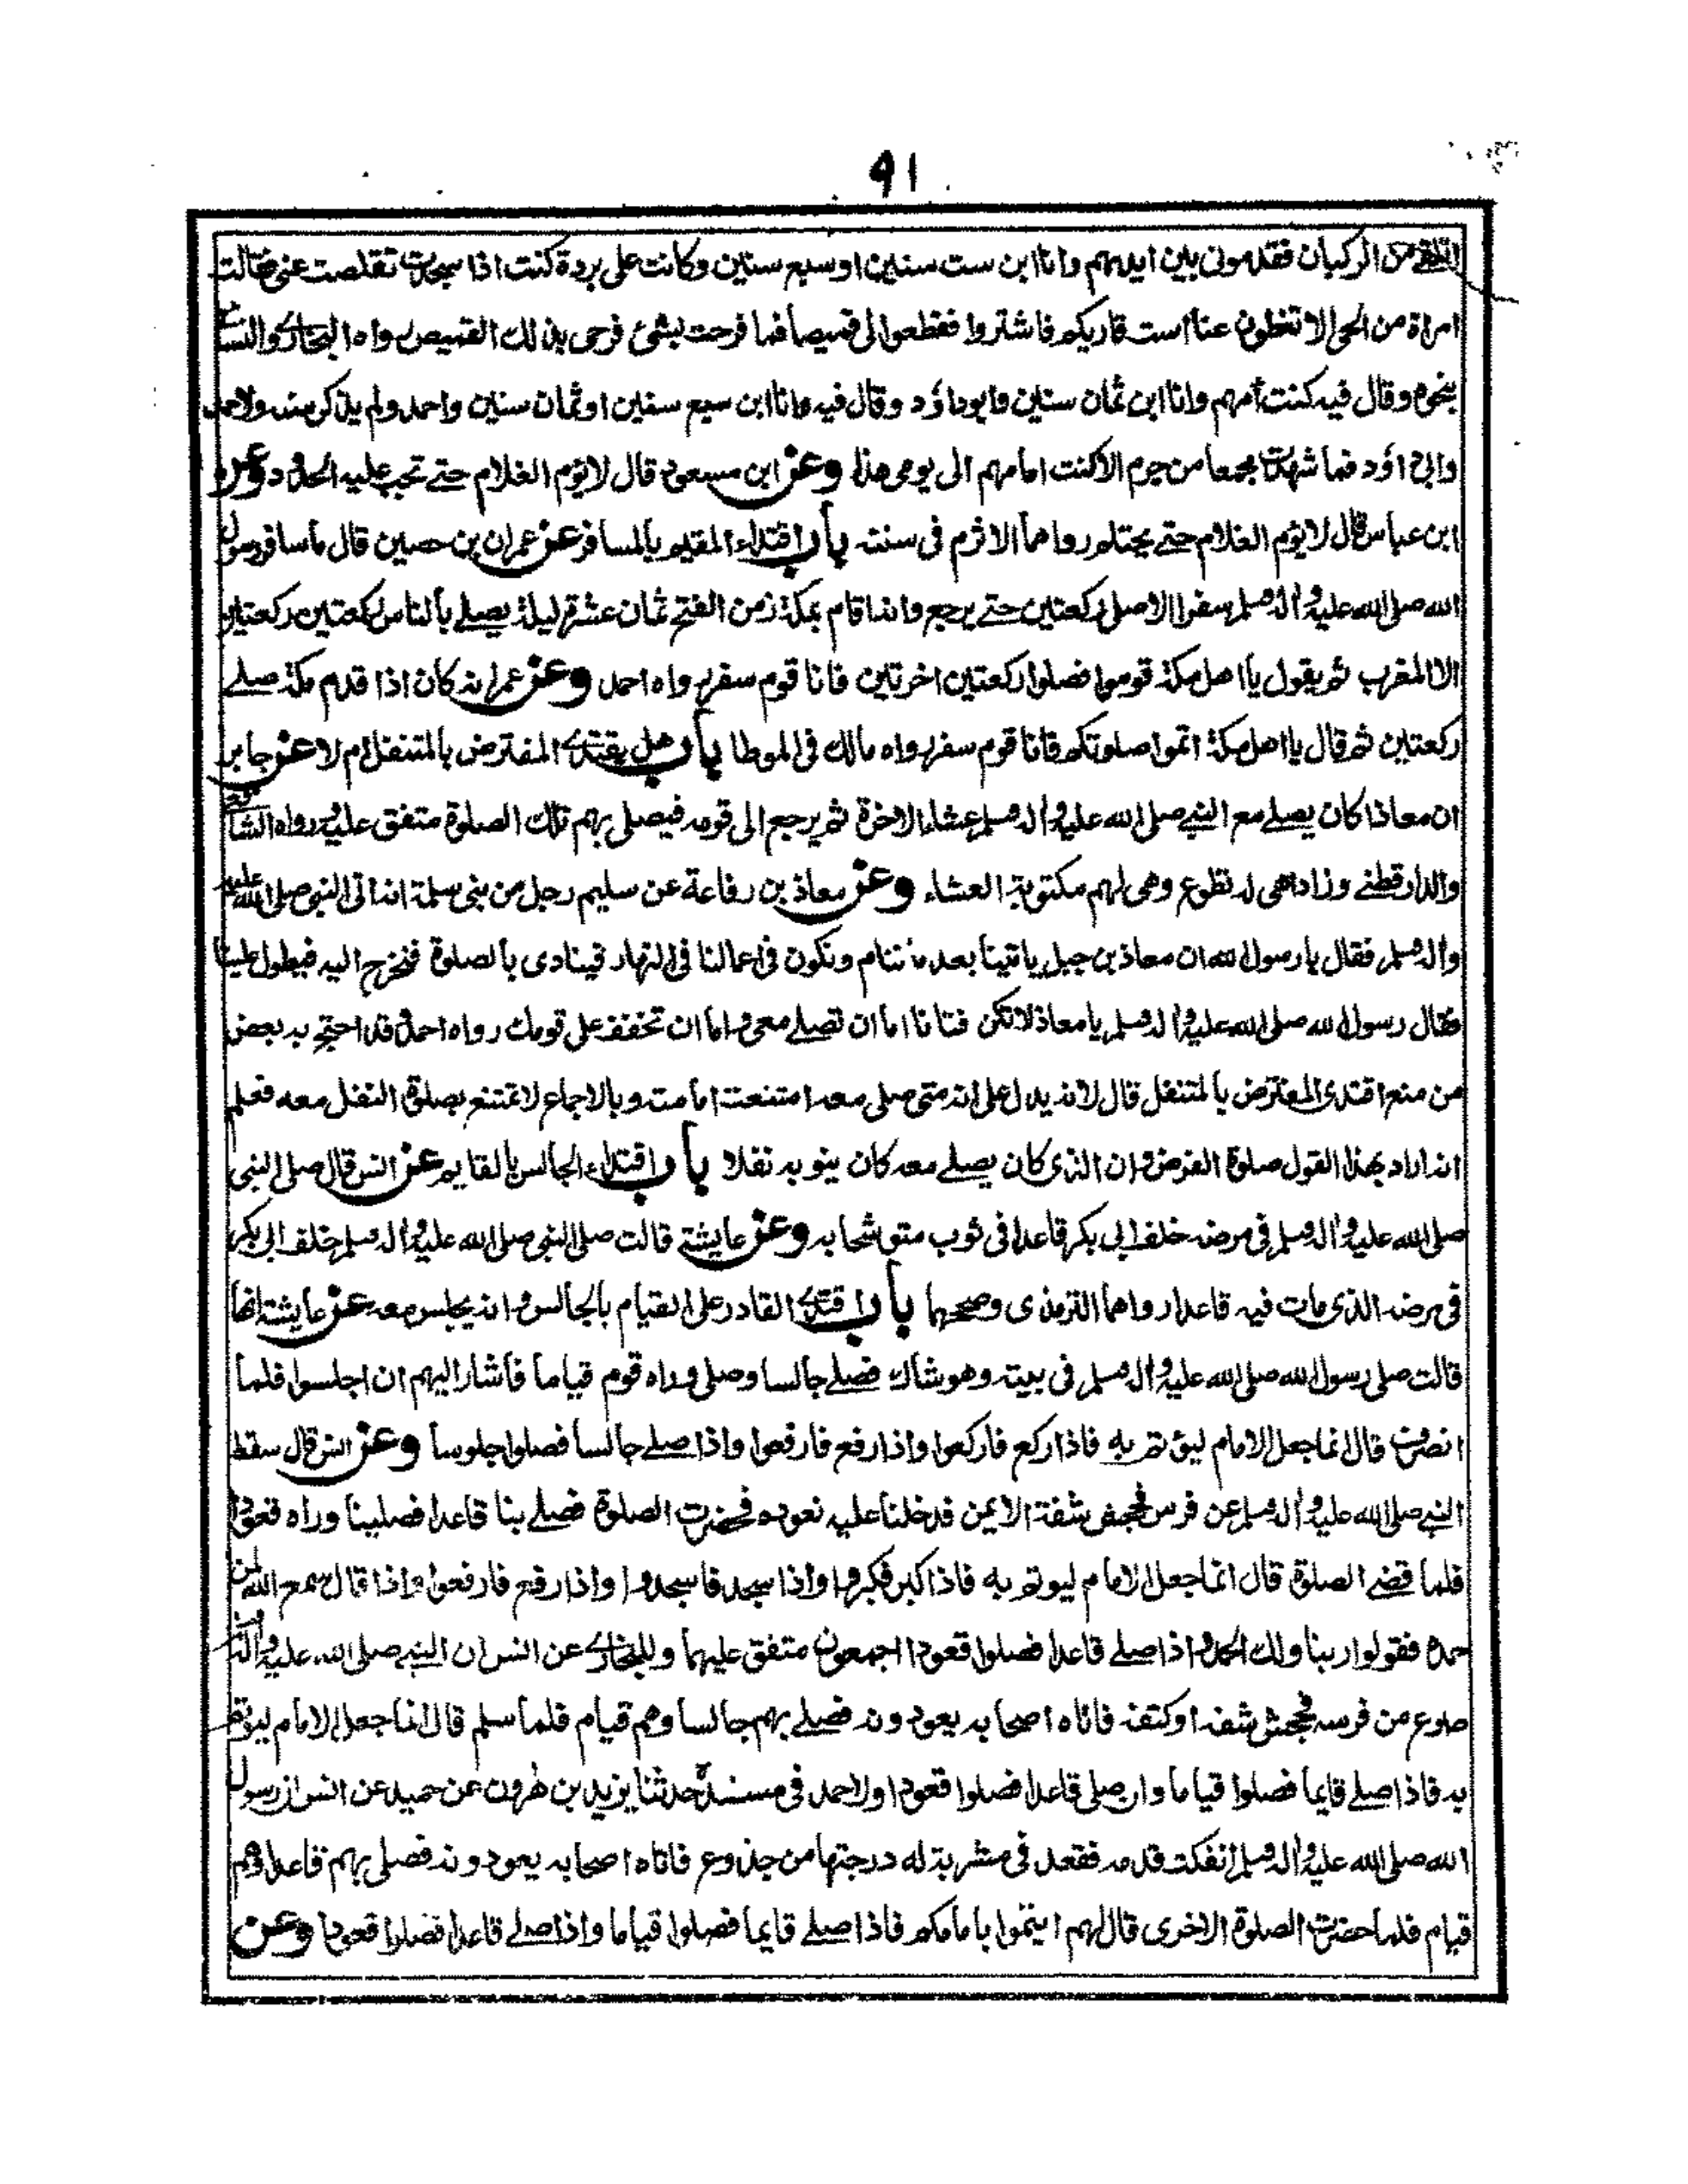 ٩١
اتلقى من الركبان فقدموني بين ايديهم وانا ابن ست سنين او سبع سنين وكانت على بردة كنت اذا سجدت تقلصت عنى فقالت
امراة من الحى الا تغطون عنا است قاريكم فاشتروا فقطعوا لى قميصا فما فرحت بشئ فرحى بذلك القميص رواه البخارى والنسائى
بنحوه وقال فيه كنت أمهم وانا ابن ثمان سنين وابوداؤد وقال فيه وانا ابن سبع سنين او ثمان سنين واحمد ولم يذكر سنه ولاحمد
وابى داؤد فما شهدت مجمعا من جرم الا كنت امامهم الى يومى هذا وعن ابن مسعود قال لا يؤم الغلام حتے تجب عليه الحدود وعن
ابن عباس قال لا يؤم الغلام حتے يحتلم رواهما الاثرم فى سننه باب اقتداء المقيم بالمسافر عن عمران بن حصين قال ما سافر رسول
الله صلى الله عليه واله وسلم سفرا الا صلى ركعتين حتے يرجع وانه اقام بمكة زمن الفتح ثمان عشرة ليلة يصلے بالناس ركعتين ركعتين
الا المغرب ثم يقول يا اهل مكة قوموا فصلوا ركعتين اخرتين فانا قوم سفر رواه احمد وعن عمر انه كان اذا قدم مكة صلے
ركعتين ثم قال يا اهل مكة اتموا صلوتكم فانا قوم سفر رواه مالك فى الموطا باب هل يقتدى المفترض بالمتنفل ام لا عن جابر
ان معاذا كان يصلے مع النبے صلى الله عليه واله وسلم عشاء الاخرة ثم يرجع الى قومه فيصلى بهم تلك الصلوة متفق عليه ورواه الشافعى
والدارقطنے وزادا هى له تطوع وهى لهم مكتوبة العشاء وعن معاذ بن رفاعة عن سليم رجل من بنى سلمة انه اتى النبى صلى الله عليه
واله وسلم فقال يا رسول الله ان معاذ بن جبل ياتينا بعد ما ننام ونكون فى اعمالنا فى النهار فينادى بالصلوة فنخرج اليه فيطول علينا
فقال رسول الله صلى الله عليه واله وسلم يا معاذ لا تكن فتانا اما ان تصلے معى واما ان تخفف على قومك رواه احمد وقد احتج به بعض
من منع اقتدى المفترض بالمتنفل قال لانه يدل على انه متى صلى معه امتنعت امامته وبالاجماع لا تمتنع بصلوة النفل معه فعلم
انه اراد بهذا القول صلوة الفرض وان الذى كان يصلے معه كان ينويه نفلا باب اقتداء الجالس بالقايم عن انس قال صلى النبى
صلى الله عليه واله وسلم فى مرضه خلف ابى بكر قاعدا فى ثوب متوشحا به وعن عايشة قالت صلى النبى صلى الله عليه واله وسلم خلف ابى بكر
فى مرضه الذى مات فيه قاعدا رواهما الترمذى وصححهما باب اقتداء القادر على القيام بالجالس وانه يجلس معه عن عايشة انها
قالت صلى رسول الله صلى الله عليه واله وسلم فى بيته وهو شاك فصلے جالسا وصلى وراه قوم قياما فاشار اليهم ان اجلسوا فلما
انصرف قال انما جعل الامام ليؤتم به فاذا ركع فاركعوا واذا رفع فارفعوا واذا صلے جالسا فصلوا جلوسا وعن انس قال سقط
النبے صلى الله عليه واله وسلم عن فرس فجحش شقه الايمن فدخلنا عليه نعوده فحضرت الصلوة فصلے بنا قاعدا فصلينا وراه قعودا
فلما قضے الصلوة قال انما جعل الامام ليوتم به فاذا كبر فكبروا واذا سجد فاسجدوا واذا رفع فارفعوا واذا قال سمع الله لمن
حمده فقولوا ربنا ولك الحمد واذا صلے قاعدا فصلوا قعودا اجمعون متفق عليهما وللبخارى عن انس ان النبے صلى الله عليه واله
صرع من فرسه فجحش شقه او كتفه فاتاه اصحابه يعودونه فصلے بهم جالسا وهم قيام فلما سلم قال انما جعل الامام ليوتم
به فاذا صلے قايما فصلوا قياما وان صلى قاعدا فصلوا قعودا ولاحمد فى مسنده حدثنا يزيد بن هرون عن حميد عن انس ان رسول
الله صلى الله عليه واله وسلم انفكت قدمه فقعد فى مشربة له درجتها من جذوع فاتاه اصحابه يعودونه فصلى بهم قاعدا وهم
قيام فلما حضرت الصلوة الاخرى قال لهم ايتموا بامامكم فاذا صلے قايما فصلوا قياما واذا صلے قاعدا فصلوا قعودا وعن